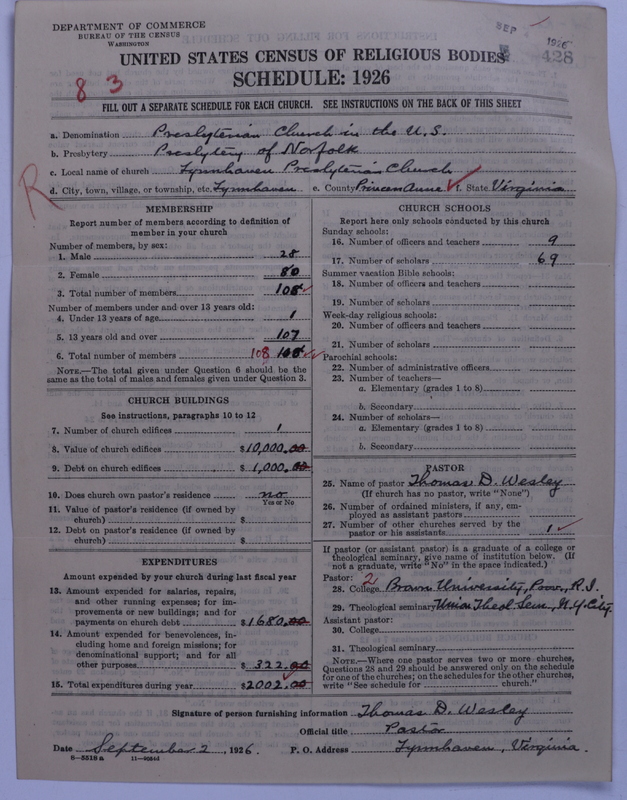 DEPARTMENT OF COMMERCE
BUREAU OF THE CENSUS
WASHINGTON
SEP 1926
428
UNITED STATES CENSUS OF RELIGIOUS BODIES
SCHEDULE: 1926
8 3
FILL OUT A SEPARATE SCHEDULE FOR EACH CHURCH. SEE INSTRUCTIONS ON THE BACK OF THIS SHEET
a. Denomination Presbyterian Church in the U.S.
b. Presbytery Presbytery of Norfolk
c. Local name of church Lynnhaven Presbyterian Church
R
d. City, town, village, or township, etc. Lynnhaven e. County Princess Anne f. State Virginia
MEMBERSHIP
Report number of members according to definition of
member in your church
Number of members, by sex:
1. Male 28
2. Female 80
3. Total number of members 108
Number of members under and over 13 years old:
4. Under 13 years of age 1
5. 13 years old and over 107
6. Total number of members 108
NOTE.—The total given under Question 6 should be the
same as the total of males and females given under Question 3.
CHURCH BUILDINGS
See instructions, paragraphs 10 to 12
7. Number of church edifices 1
8. Value of church edifices $10,000.00
9. Debt on church edifices $1,000.00
10. Does church own pastor's residence no
Yes or No
11. Value of pastor's residence (if owned by
church) $
12. Debt on pastor's residence (if owned by
church) $
EXPENDITURES
Amount expended by your church during last fiscal year
13. Amount expended for salaries, repairs,
and other running expenses; for im-
provements or new buildings; and for
payments on church debt $1680.00
14. Amount expended for benevolences, in-
cluding home and foreign missions; for
denominational support; and for all
other purposes $322.00
15. Total expenditures during year $2002.00
CHURCH SCHOOLS
Report here only schools conducted by this church
Sunday schools:
16. Number of officers and teachers 9
17. Number of scholars 69
Summer vacation Bible schools:
18. Number of officers and teachers
19. Number of scholars
Week-day religious schools:
20. Number of officers and teachers
21. Number of scholars
Parochial schools:
22. Number of administrative officers
23. Number of teachers—
a. Elementary (grades 1 to 8)
b. Secondary
24. Number of scholars—
a. Elementary (grades 1 to 8)
b. Secondary
PASTOR
25. Name of pastor Thomas D. Wesley
(If church has no pastor, write "None")
26. Number of ordained ministers, if any, em-
ployed as assistant pastors
27. Number of other churches served by the
pastor or his assistants 1
If pastor (or assistant pastor) is a graduate of a college or
theological seminary, give name of institution below. (If
not a graduate, write "No" in the space indicated.)
Pastor: 2
28. College Brown University, Prov., R.I.
29. Theological seminary Union Theol. Sem., N.Y. City.
Assistant pastor:
30. College
31. Theological seminary
NOTE.—Where one pastor serves two or more churches,
Questions 28 and 29 should be answered only on the schedule
for one of the churches; on the schedules for the other churches,
write "See schedule for church."
Signature of person furnishing information Thomas D. Wesley
Official title Pastor
Date September 2, 1926. P. O. Address Lynnhaven, Virginia.
8-5518 a